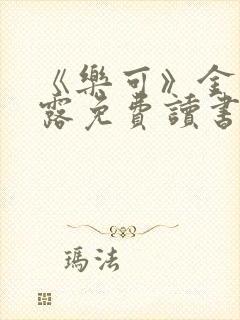 《樂可》金
露免費讀書
瑪法